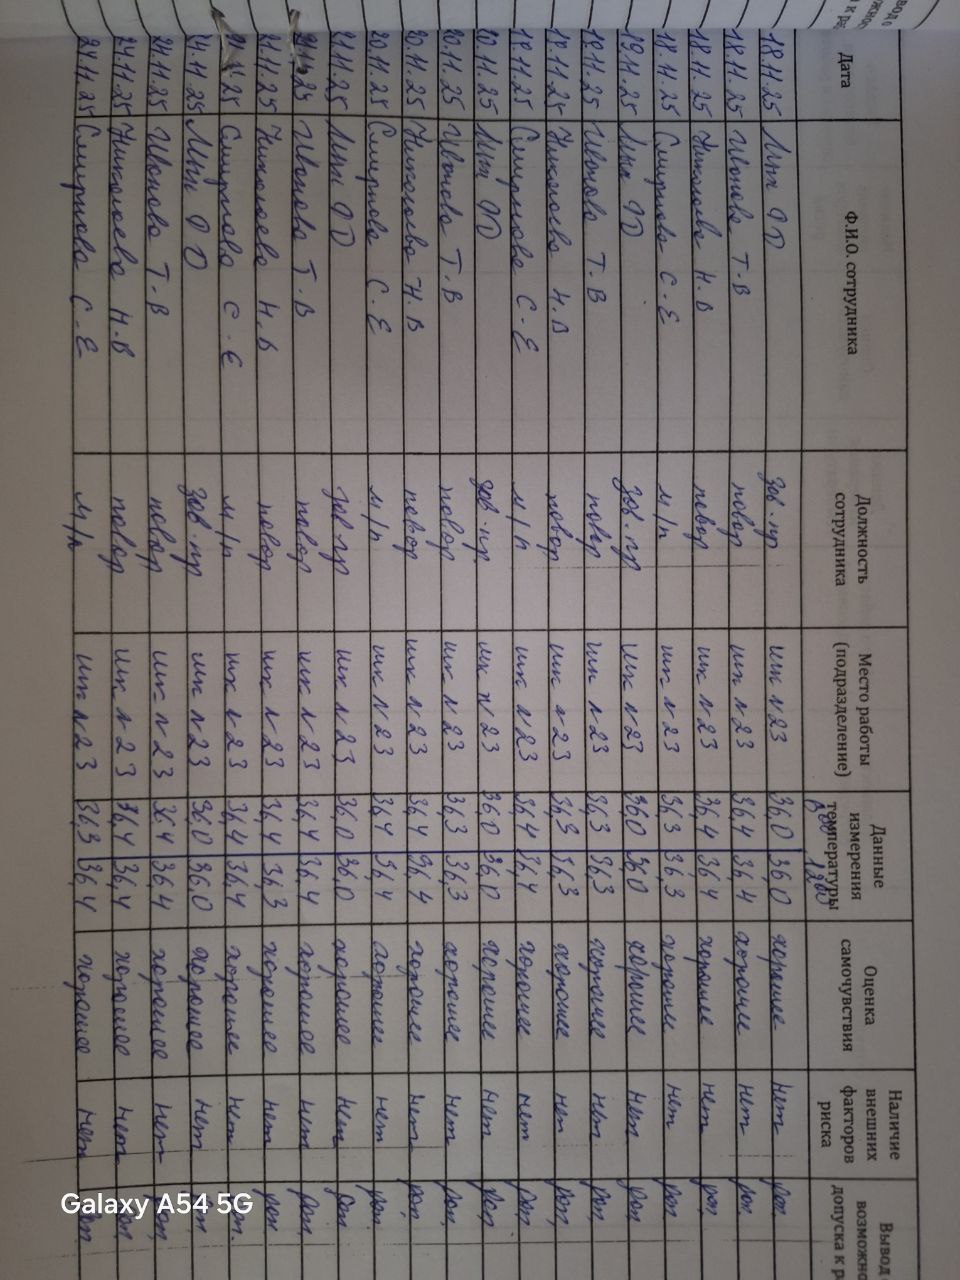 Дата Ф.И.О. сотрудника Должность сотрудника Место работы (подразделение) Данные измерения температуры 8⁰⁰ 12⁰⁰ Оценка самочувствия Наличие внешних факторов риска Вывод возможно допуска к р
18.11.25 зав.пр шк №23 36,0 36,0 хорошее нет
18.11.25 Иванова Т.В повар шк №23 36,4 36,4 хорошее нет
18.11.25 Николаева Н.В повар шк №23 36,4 36,4 хорошее нет
18.11.25 Смирнова С.Е м/п шк №23 36,3 36,3 хорошее нет
19.11.25 зав.пр шк №23 36,0 36,0 хорошее нет
19.11.25 Иванова Т.В повар шк №23 36,3 36,3 хорошее нет
19.11.25 Николаева Н.В повар шк №23 36,3 36,3 хорошее нет
19.11.25 Смирнова С.Е м/п шк №23 36,4 36,4 хорошее нет
20.11.25 зав.пр шк №23 36,0 36,0 хорошее нет
20.11.25 Иванова Т.В повар шк №23 36,3 36,3 хорошее нет
20.11.25 Николаева Н.В повар шк №23 36,4 36,4 хорошее нет
20.11.25 Смирнова С.Е м/п шк №23 36,4 36,4 хорошее нет
21.11.25 зав.пр шк №23 36,0 36,0 хорошее нет
21.11.25 Иванова Т.В повар шк №23 36,4 36,4 хорошее нет
21.11.25 Николаева Н.В повар шк №23 36,4 36,3 хорошее нет
21.11.25 Смирнова С.Е м/п шк №23 36,4 36,4 хорошее нет
24.11.25 зав.пр шк №23 36,0 36,0 хорошее нет
24.11.25 Иванова Т.В повар шк №23 36,4 36,4 хорошее нет
24.11.25 Николаева Н.В повар шк №23 36,4 36,4 хорошее нет
24.11.25 Смирнова С.Е м/п шк №23 36,3 36,4 хорошее нет
Galaxy A54 5G